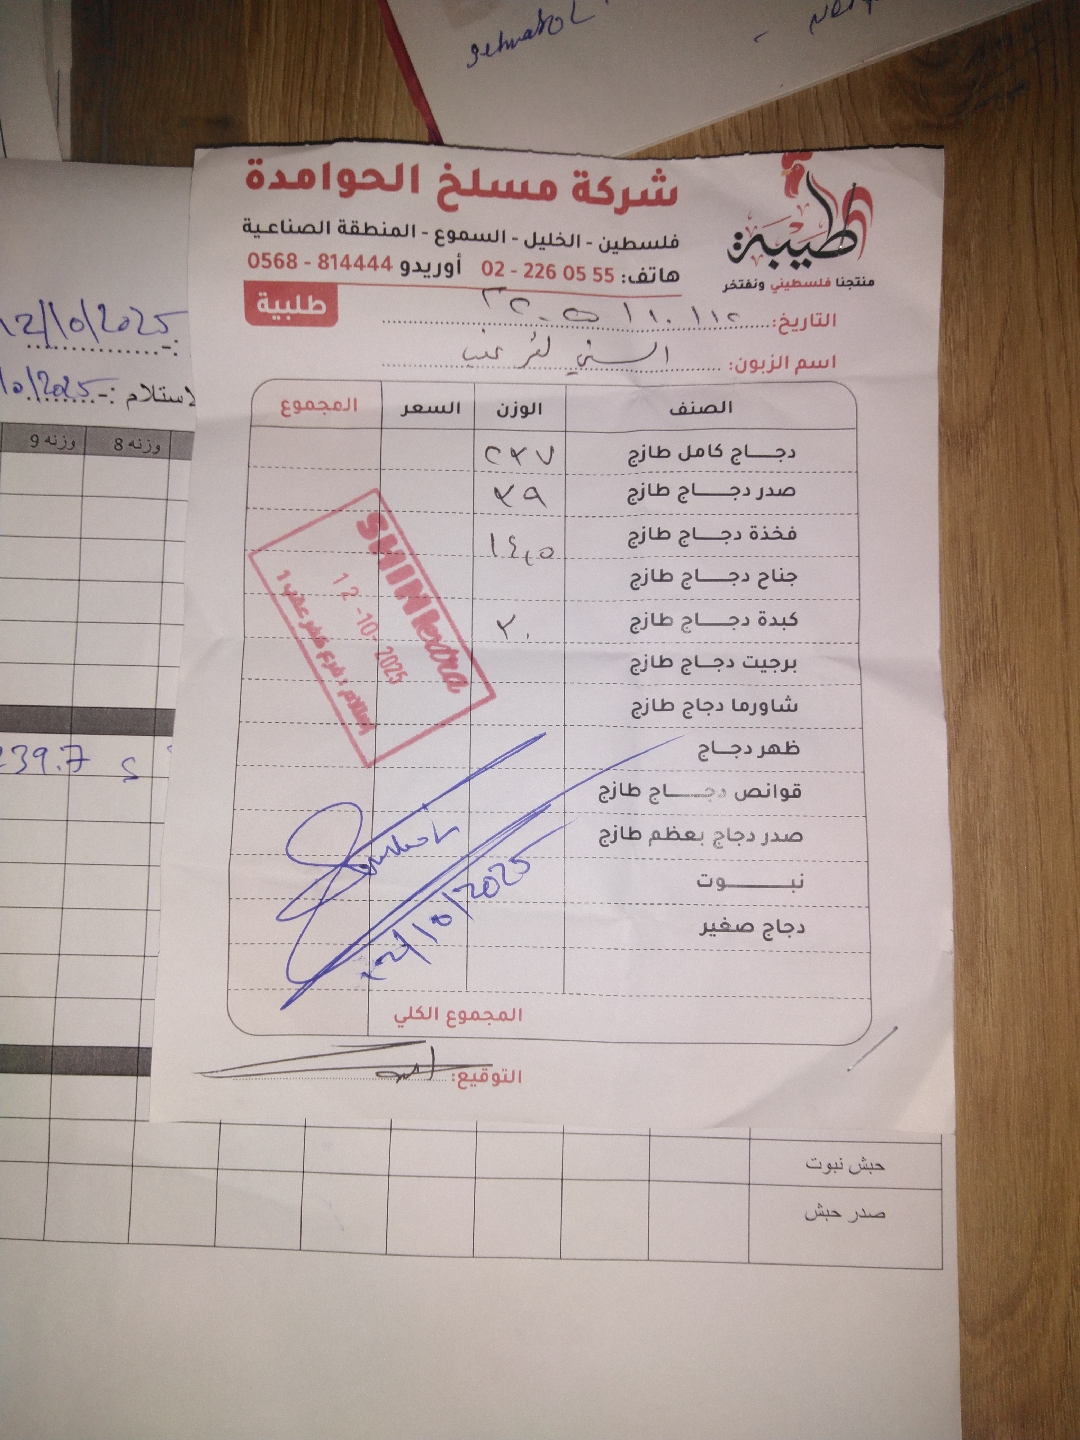 شركة مسلخ الحوامدة
فلسطين - الخليل - السموع - المنطقة الصناعية
هاتف: 02 - 226 05 55 أوريدو 0568 - 814444
طيبة
منتجنا فلسطيني ونفتخر
طلبية
التاريخ:
اسم الزبون:
الصنف الوزن السعر المجموع
دجاج كامل طازج ٢٣٧
صدر دجاج طازج ٣٩
فخذة دجاج طازج ١٤,٥
جناح دجاج طازج
كبدة دجاج طازج ٣٠
برجيت دجاج طازج
شاورما دجاج طازج
ظهر دجاج
قوانص دجاج طازج
صدر دجاج بعظم طازج
نبوت
دجاج صغير
المجموع الكلي
التوقيع:
SHINI extra
12-10-2025
استلام : فرع كفر عقب 1
12/10/2025
12/10/2025
لاستلام :-
وزنه 8 وزنه 9
239.7
حبش نبوت
صدر حبش